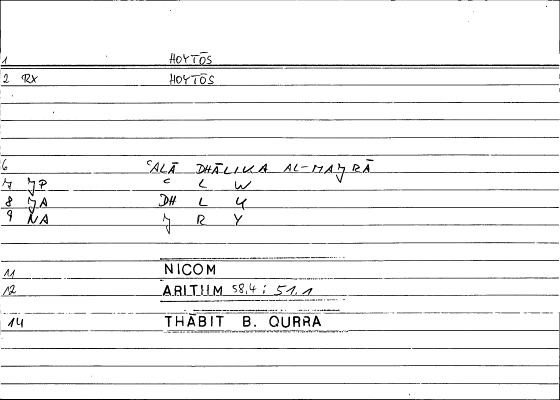 1 HOYTŌS
2 RX HOYTŌS
6 ʿALĀ DHĀLIKA AL-MAJRĀ
7 JP ʿ L W
8 JA DH L K
9 NA J R Y
11 NICOM
12 ARITHM 58,4 ; 51,1
14 THĀBIT B. QURRA